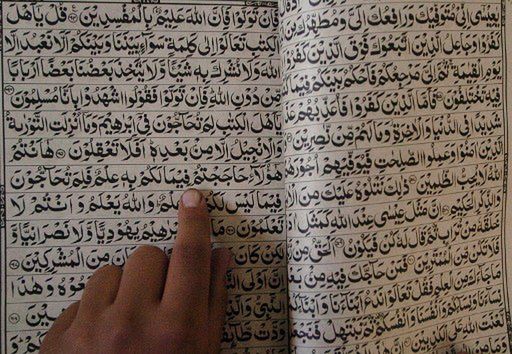 يٰعِيْسٰى اِنِّيْ مُتَوَفِّيْكَ وَرَافِعُكَ اِلَيَّ وَمُطَهِّرُكَ مِنَ
كَفَرُوْا وَجَاعِلُ الَّذِيْنَ اتَّبَعُوْكَ فَوْقَ الَّذِيْنَ كَفَرُوْا
يَوْمِ الْقِيٰمَةِ ثُمَّ اِلَيَّ مَرْجِعُكُمْ فَاَحْكُمُ بَيْنَكُمْ فِيْمَا
فِيْهِ تَخْتَلِفُوْنَ فَاَمَّا الَّذِيْنَ كَفَرُوْا فَاُعَذِّبُهُمْ
شَدِيْدًا فِي الدُّنْيَا وَالْاٰخِرَةِ وَمَا لَهُمْ مِّنْ نّٰصِرِيْنَ
الَّذِيْنَ اٰمَنُوْا وَعَمِلُوا الصّٰلِحٰتِ فَيُوَفِّيْهِمْ اُجُوْرَهُمْ
اللّٰهُ لَا يُحِبُّ الظّٰلِمِيْنَ ذٰلِكَ نَتْلُوْهُ عَلَيْكَ مِنَ
وَالذِّكْرِ الْحَكِيْمِ اِنَّ مَثَلَ عِيْسٰى عِنْدَ اللّٰهِ كَمَثَلِ
خَلَقَهٗ مِنْ تُرَابٍ ثُمَّ قَالَ لَهٗ كُنْ فَيَكُوْنُ اَلْحَقُّ مِنْ
فَلَا تَكُنْ مِّنَ الْمُمْتَرِيْنَ فَمَنْ حَآجَّكَ فِيْهِ
مَا جَآءَكَ مِنَ الْعِلْمِ فَقُلْ تَعَالَوْا نَدْعُ اَبْنَآءَنَا وَاَبْنَآءَكُمْ
وَنِسَآءَنَا وَنِسَآءَكُمْ وَاَنْفُسَنَا وَاَنْفُسَكُمْ ثُمَّ نَبْتَهِلْ فَنَجْعَلْ
لَّعْنَتَ اللّٰهِ عَلَى الْكٰذِبِيْنَ
فَاِنْ تَوَلَّوْا فَاِنَّ اللّٰهَ عَلِيْمٌ بِالْمُفْسِدِيْنَ قُلْ يٰٓاَهْلَ
الْكِتٰبِ تَعَالَوْا اِلٰى كَلِمَةٍ سَوَآءٍ بَيْنَنَا وَبَيْنَكُمْ اَلَّا نَعْبُدَ اِلَّا
اللّٰهَ وَلَا نُشْرِكَ بِهٖ شَيْئًا وَّلَا يَتَّخِذَ بَعْضُنَا بَعْضًا اَرْبَابًا
مِّنْ دُوْنِ اللّٰهِ فَاِنْ تَوَلَّوْا فَقُوْلُوا اشْهَدُوْا بِاَنَّا مُسْلِمُوْنَ
يٰٓاَهْلَ الْكِتٰبِ لِمَ تُحَآجُّوْنَ فِيْٓ اِبْرٰهِيْمَ وَمَآ اُنْزِلَتِ التَّوْرٰىةُ
وَالْاِنْجِيْلُ اِلَّا مِنْۢ بَعْدِهٖ اَفَلَا تَعْقِلُوْنَ هٰٓاَنْتُمْ
هٰٓؤُلَآءِ حَاجَجْتُمْ فِيْمَا لَكُمْ بِهٖ عِلْمٌ فَلِمَ تُحَآجُّوْنَ
فِيْمَا لَيْسَ لَكُمْ وَاللّٰهُ يَعْلَمُ وَاَنْتُمْ لَا
تَعْلَمُوْنَ مَا يَهُوْدِيًّا وَّلَا نَصْرَانِيًّا
وَّلٰكِنْ كَانَ مِنَ الْمُشْرِكِيْنَ
اِنَّ اَوْلَى وَهٰذَا
النَّبِيُّ
وَدَّتْ طَّآئِفَةٌ